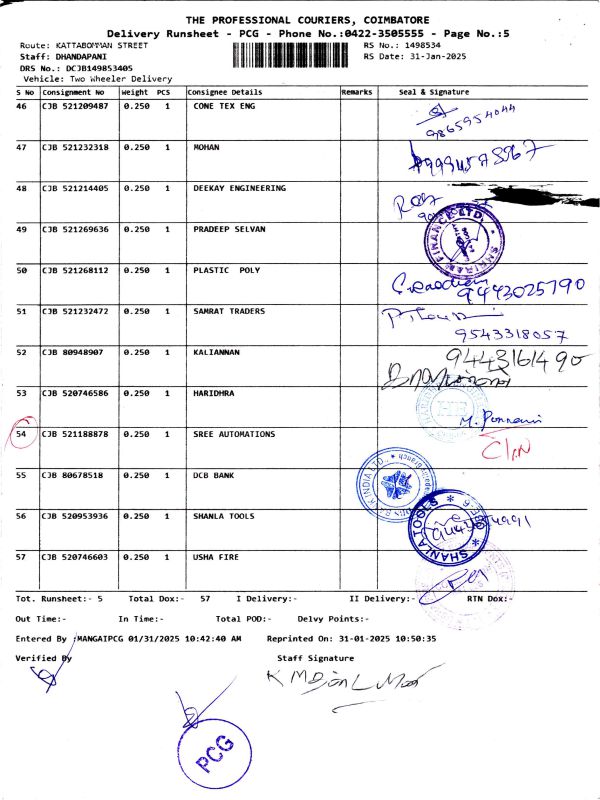 THE PROFESSIONAL COURIERS, COIMBATORE
Delivery Runsheet - PCG - Phone No.:0422-3505555 - Page No.:5
Route: KATTABOMMAN STREET RS No.: 1498534
Staff: DHANDAPANI RS Date: 31-Jan-2025
DRS No.: DCJB149853405
Vehicle: Two Wheeler Delivery
S No Consignment No Weight PCS Consignee Details Remarks Seal & Signature
46 CJB 521209487 0.250 1 CONE TEX ENG
9865954044
47 CJB 521232318 0.250 1 MOHAN
48 CJB 521214405 0.250 1 DEEKAY ENGINEERING
49 CJB 521269636 0.250 1 PRADEEP SELVAN
FINANCE LTD.
50 CJB 521268112 0.250 1 PLASTIC POLY
9443025790
51 CJB 521232472 0.250 1 SAMRAT TRADERS
9543318057
52 CJB 80948907 0.250 1 KALIANNAN
9443161490
53 CJB 520746586 0.250 1 HARIDHRA
54 CJB 521188878 0.250 1 SREE AUTOMATIONS
55 CJB 80678518 0.250 1 DCB BANK
56 CJB 520953936 0.250 1 SHANLA TOOLS
SHANLA TOOLS
57 CJB 520746603 0.250 1 USHA FIRE
Tot. Runsheet:- 5 Total Dox:- 57 I Delivery:- II Delivery:- RTN Dox:-
Out Time:- In Time:- Total POD:- Delvy Points:-
Entered By :MANGAIPCG 01/31/2025 10:42:40 AM Reprinted On: 31-01-2025 10:50:35
Verified By Staff Signature
PCG